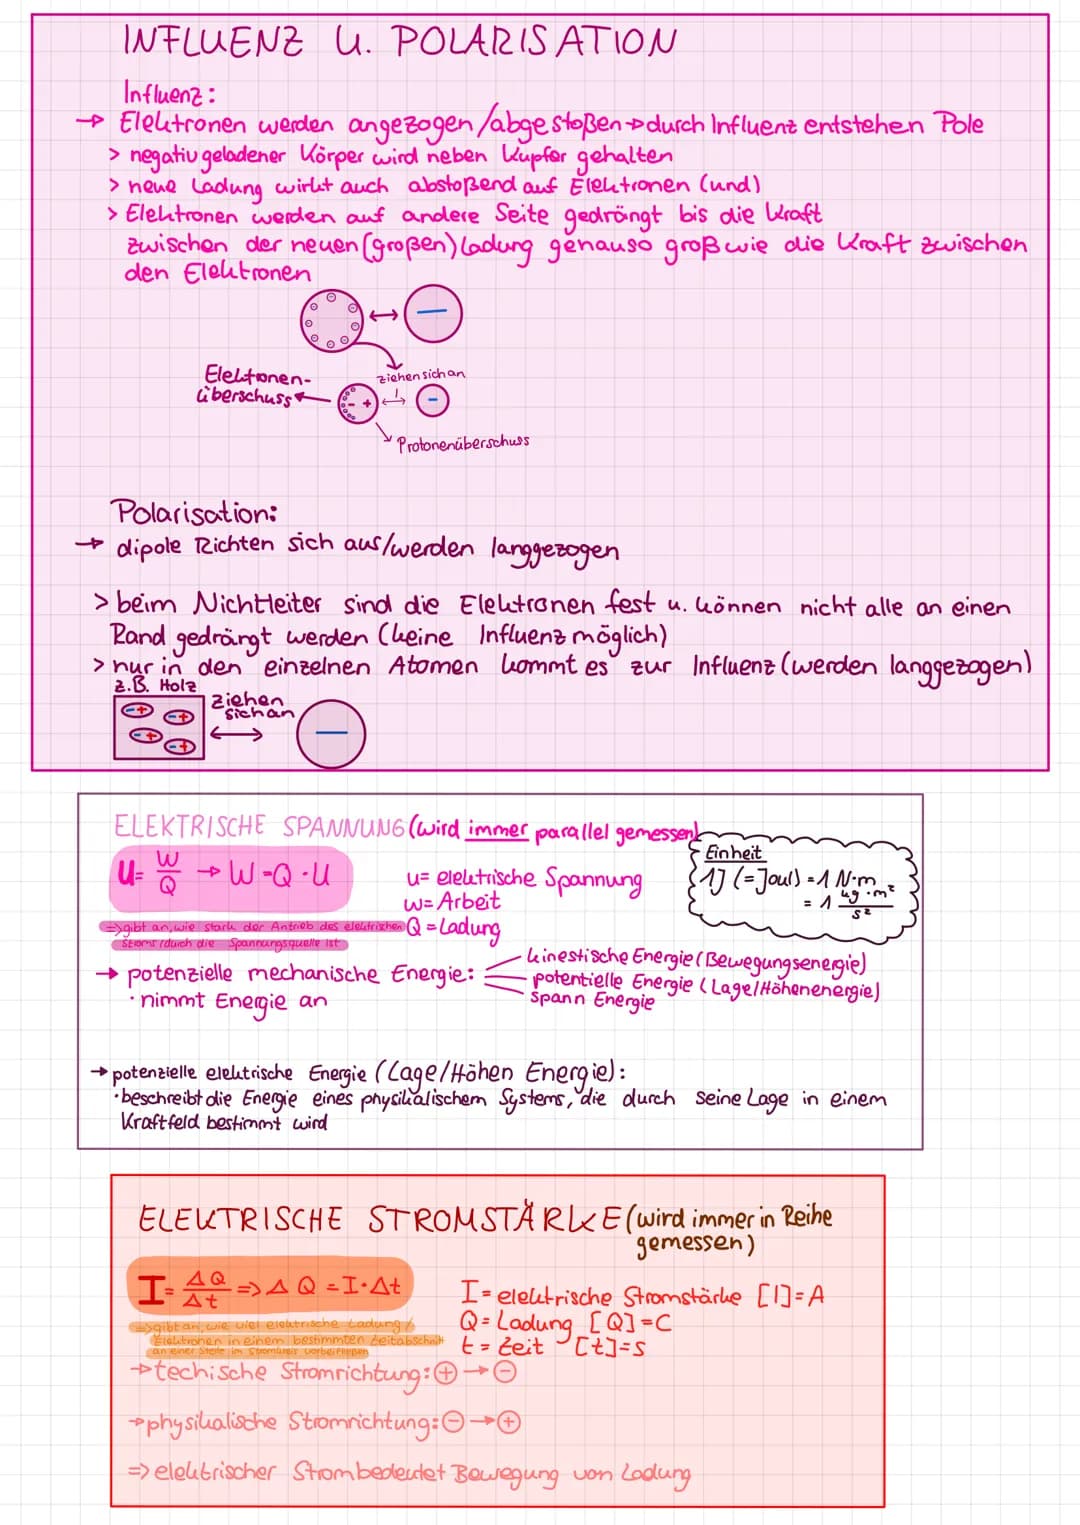 INFLUENZ U. POLARISATION
Influenz:
→ Elektronen werden angezogen/abgestoßen → durch Influenz entstehen Pole
> negativ geladener Körper wird neben Kupfer gehalten
> neue Ladung wirkt auch abstoßend auf Elektronen (und)
> Elektronen werden auf andere Seite gedrängt bis die Kraft
zwischen der neuen (großen) Ladung genauso groß wie die Kraft zwischen
den Elektronen
Elektronen-
überschuss
ziehen sich an
Protonenüberschuss
Polarisation:
→ dipole Richten sich aus/werden langgezogen
> beim Nichtleiter sind die Elektronen fest u. können nicht alle an einen
Rand gedrängt werden (keine Influenz möglich)
> nur in den einzelnen Atomen kommt es zur Influenz (werden langgezogen)
z.B. Holz
ziehen
sich an
ELEKTRISCHE SPANNUNG (wird immer parallel gemessen)
U = W/Q → W = Q · U
u = elektrische Spannung
w = Arbeit
Q = Ladung
Einheit
1J (=Joul) = 1 N·m
= 1 kg·m²/s²
=> gibt an, wie stark der Antrieb des elektrischen
Stroms durch die Spannungsquelle ist
→ potenzielle mechanische Energie:
· nimmt Energie an
kinestische Energie (Bewegungsenergie)
potentielle Energie (Lage/Höhenenergie)
Spann Energie
→ potenzielle elektrische Energie (Lage/Höhen Energie):
· beschreibt die Energie eines physikalischem Systems, die durch seine Lage in einem
Kraftfeld bestimmt wird
ELEKTRISCHE STROMSTÄRKE (wird immer in Reihe
gemessen)
I = ΔQ/Δt => ΔQ = I·Δt
I = elektrische Stromstärke [I] = A
Q = Ladung [Q] = C
t = Zeit [t] = s
=> gibt an, wie viel elektrische Ladung /
Elektronen in einem bestimmten Zeitabschnitt
an einer Stelle im Stromkreis vorbeifließen
→ techische Stromrichtung: ⊕ → ⊖
→ physikalische Stromrichtung: ⊖ → ⊕
=> elektrischer Strom bedeutet Bewegung von Ladung